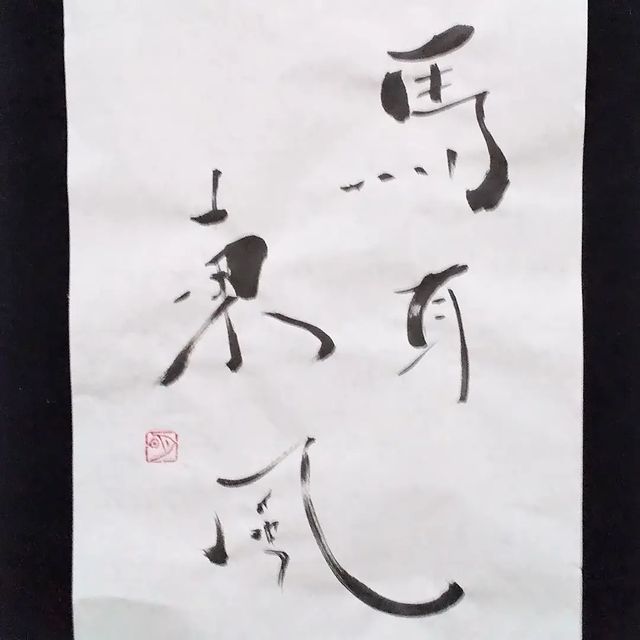 馬耳
東風